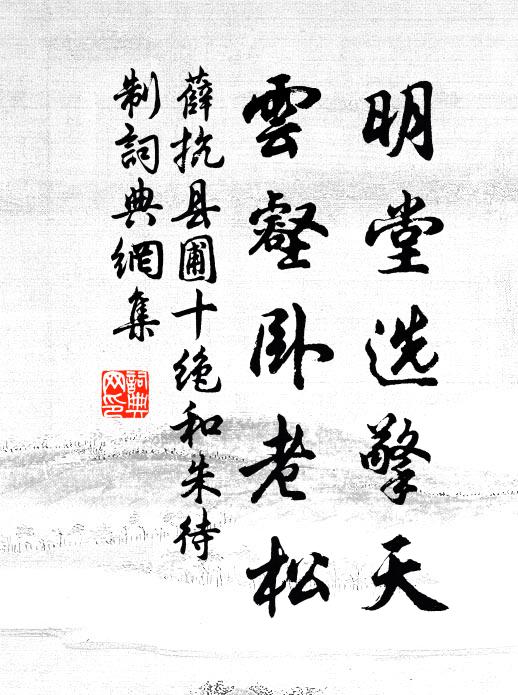 明堂选擎天
雲壑卧老松
薛抗县圃十绝和朱待
制詞典網集
詞典
网印